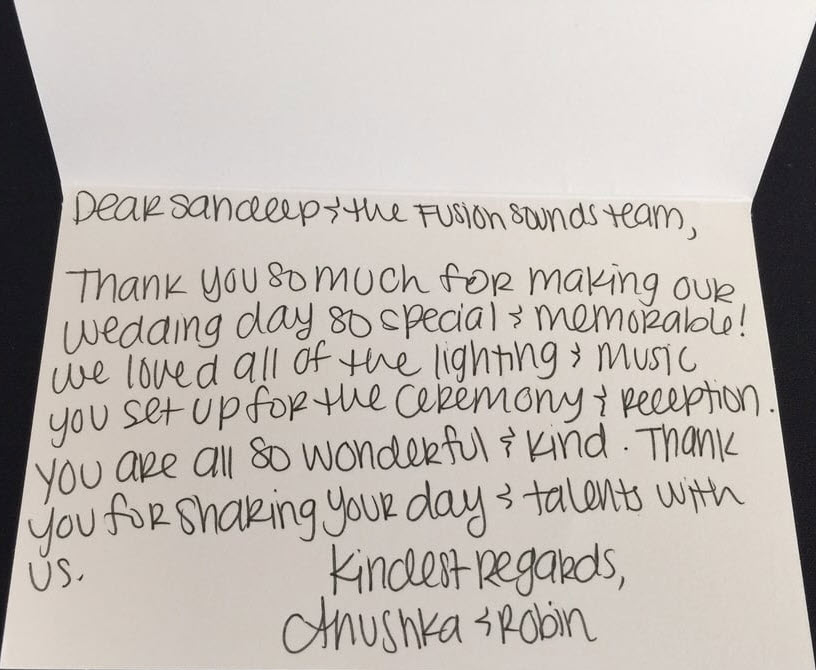 Dear Sandeep & the Fusion Sounds team,
Thank you so much for making our
wedding day so special & memorable!
We loved all of the lighting & music
you set up for the ceremony & reception.
You are all so wonderful & kind. Thank
you for sharing your day & talents with
us.
Kindest regards,
Anushka & Robin